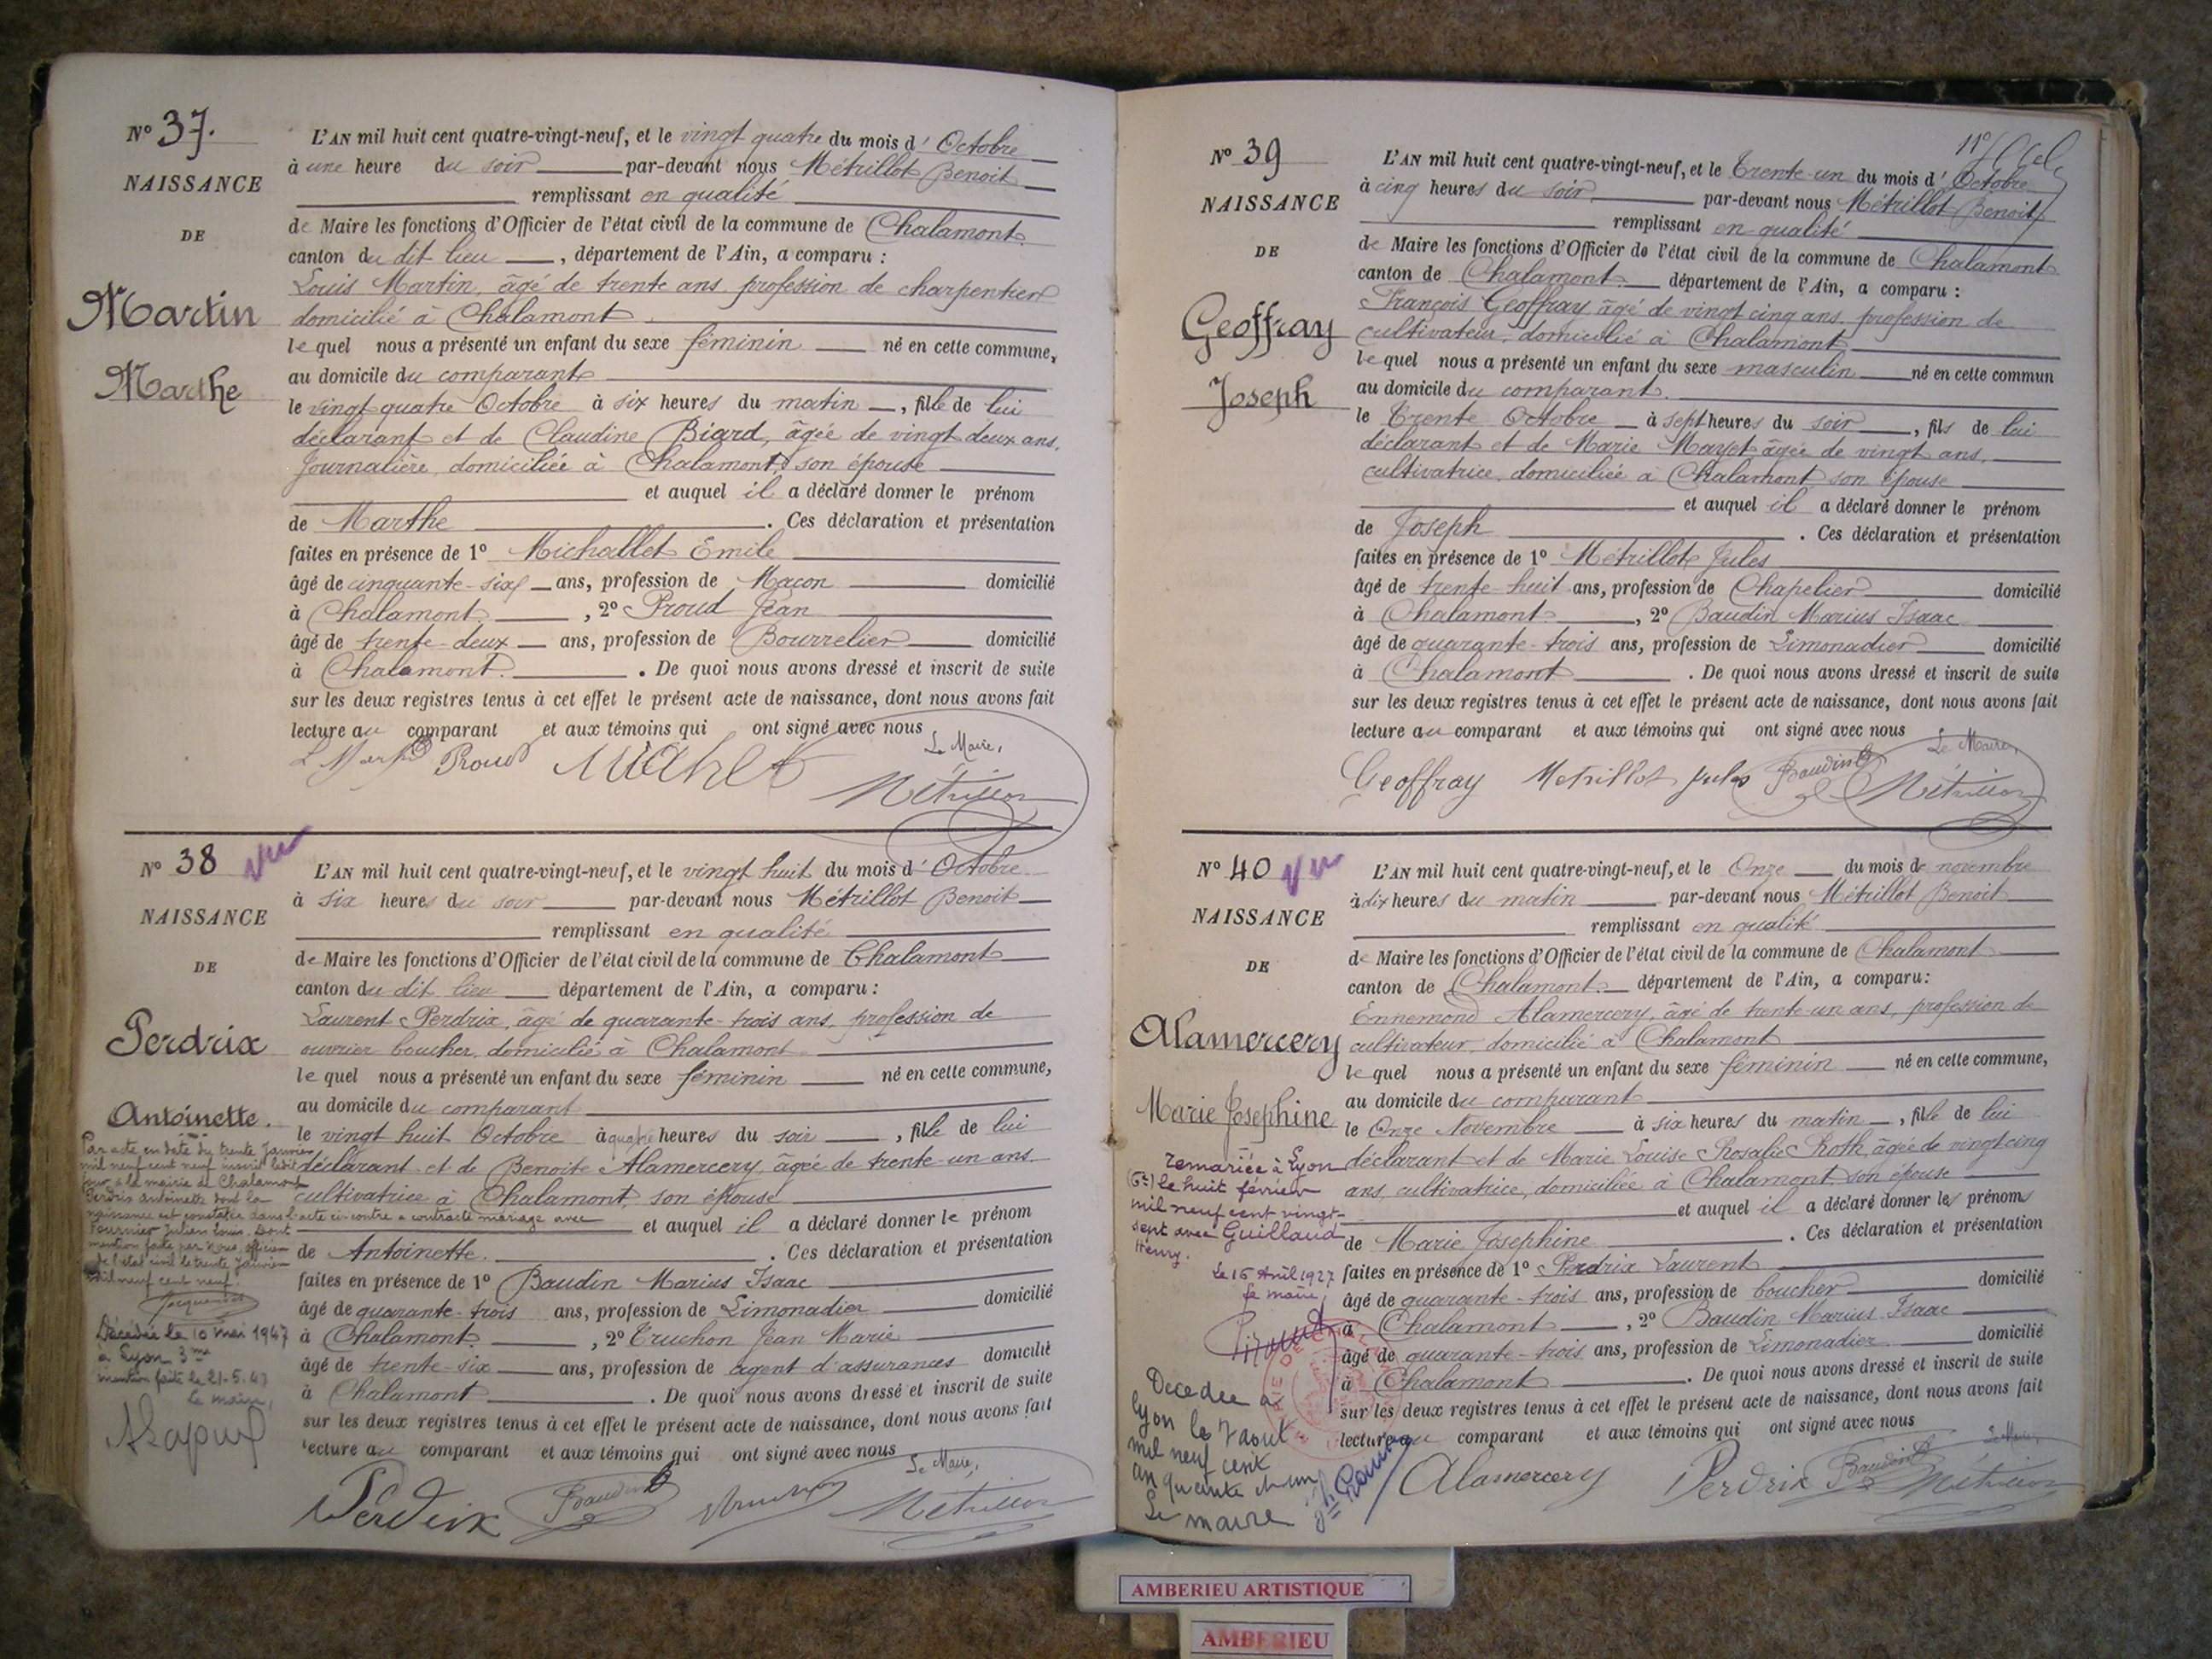 N° 37.
NAISSANCE
DE
Martin
Marthe
L'AN mil huit cent quatre-vingt-neuf, et le vingt quatre du mois d' Octobre
à une heure du soir par-devant nous Métrillot Benoit
remplissant en qualité
de Maire les fonctions d'Officier de l'état civil de la commune de Chalamont
canton du dit lieu, département de l'Ain, a comparu :
Louis Martin, âgé de trente ans profession de charpentier
domicilié à Chalamont.
lequel nous a présenté un enfant du sexe féminin né en cette commune,
au domicile du comparant
le vingt quatre Octobre à six heures du matin, fille de lui
déclarant et de Claudine Biard, âgée de vingt deux ans,
Journalière, domiciliée à Chalamont, son épouse
et auquel il a déclaré donner le prénom
de Marthe. Ces déclaration et présentation
faites en présence de 1° Michallet Emile
âgé de cinquante-six ans, profession de Maçon domicilié
à Chalamont, 2° Proud Jean
âgé de trente-deux ans, profession de Bourrelier domicilié
à Chalamont. De quoi nous avons dressé et inscrit de suite
sur les deux registres tenus à cet effet le présent acte de naissance, dont nous avons fait
lecture au comparant et aux témoins qui ont signé avec nous
Le Maire,
Proud
N° 38 Vu
NAISSANCE
DE
Perdrix
Antoinette.
L'AN mil huit cent quatre-vingt-neuf, et le vingt huit du mois d' Octobre
à six heures du soir par-devant nous Métrillot Benoit
remplissant en qualité
de Maire les fonctions d'Officier de l'état civil de la commune de Chalamont
canton du dit lieu département de l'Ain, a comparu :
Laurent Perdrix, âgé de quarante-trois ans, profession de
ouvrier boucher, domicilié à Chalamont
lequel nous a présenté un enfant du sexe féminin né en cette commune,
au domicile du comparant
le vingt huit Octobre à quatre heures du soir, fille de lui
déclarant et de Benoite Alamercery, âgée de trente-un ans
cultivatrice à Chalamont, son épouse
et auquel il a déclaré donner le prénom
de Antoinette. Ces déclaration et présentation
faites en présence de 1° Baudin Marius Isaac
âgé de quarante-trois ans, profession de Limonadier domicilié
à Chalamont, 2° Truchon Jean Marie
âgé de trente-six ans, profession de agent d'assurances domicilié
à Chalamont. De quoi nous avons dressé et inscrit de suite
sur les deux registres tenus à cet effet le présent acte de naissance, dont nous avons fait
lecture au comparant et aux témoins qui ont signé avec nous
Le Maire,
Perdrix Baudin Métrillot
Par acte en date du trente Janvier
mil neuf cent neuf inscrit ledit
jour à la mairie de Chalamont
Perdrix Antoinette dont la
naissance est constatée dans l'acte ci-contre a contracté mariage avec
Fournier Julien Louis. Dont
mention faite par nous, officier
de l'état civil le trente Janvier
mil neuf cent neuf.
Décédée le 10 mai 1947
à Lyon 3me
mention faite le 21.5.47
le maire,
N° 39
NAISSANCE
DE
Geoffray
Joseph
L'AN mil huit cent quatre-vingt-neuf, et le Trente-un du mois d' Octobre
à cinq heures du soir par-devant nous Métrillot Benoit
remplissant en qualité
de Maire les fonctions d'Officier de l'état civil de la commune de Chalamont
canton de Chalamont département de l'Ain, a comparu :
François Geoffray âgé de vingt cinq ans, profession de
cultivateur, domicilié à Chalamont
lequel nous a présenté un enfant du sexe masculin né en cette commun
au domicile du comparant.
le Trente Octobre à sept heures du soir, fils de lui
déclarant et de Marie Mayet âgée de vingt ans,
cultivatrice, domiciliée à Chalamont son épouse
et auquel il a déclaré donner le prénom
de Joseph. Ces déclaration et présentation
faites en présence de 1° Métrillot Jules
âgé de trente huit ans, profession de Chapelier domicilié
à Chalamont, 2° Baudin Marius Isaac
âgé de quarante-trois ans, profession de Limonadier domicilié
à Chalamont. De quoi nous avons dressé et inscrit de suite
sur les deux registres tenus à cet effet le présent acte de naissance, dont nous avons fait
lecture au comparant et aux témoins qui ont signé avec nous
Le Maire,
Geoffray Metrillot Jules Baudin Métrillot
N° 40 Vu
NAISSANCE
DE
Alamercery
Marie Josephine
L'AN mil huit cent quatre-vingt-neuf, et le Onze du mois de novembre
à dix heures du matin par-devant nous Métrillot Benoit
remplissant en qualité
de Maire les fonctions d'Officier de l'état civil de la commune de Chalamont
canton de Chalamont. département de l'Ain, a comparu :
Ennemond Alamercery, âgé de trente-un ans, profession de
cultivateur, domicilié à Chalamont
lequel nous a présenté un enfant du sexe féminin né en cette commune,
au domicile du comparant
le Onze Novembre à six heures du matin, fille de lui
déclarant et de Marie Louise Rosalie Roth, âgée de vingt cinq
ans, cultivatrice, domiciliée à Chalamont, son épouse
et auquel il a déclaré donner les prénoms
de Marie Josephine. Ces déclaration et présentation
faites en présence de 1° Perdrix Laurent
âgé de quarante-trois ans, profession de boucher domicilié
à Chalamont, 2° Baudin Marius Isaac
âgé de quarante-trois ans, profession de Limonadier domicilié
à Chalamont. De quoi nous avons dressé et inscrit de suite
sur les deux registres tenus à cet effet le présent acte de naissance, dont nous avons fait
lecture au comparant et aux témoins qui ont signé avec nous
Le Maire,
Alamercery Perdrix Baudin Métrillot
remariée à Lyon
(6e) le huit février
mil neuf cent vingt-
sept avec Guillaud
Henry.
Le 16 Avril 1927
Le maire,
Decedee a
Lyon le 7 aout
mil neuf cent
cinquante et un
Le maire
AMBERIEU ARTISTIQUE
AMBERIEU